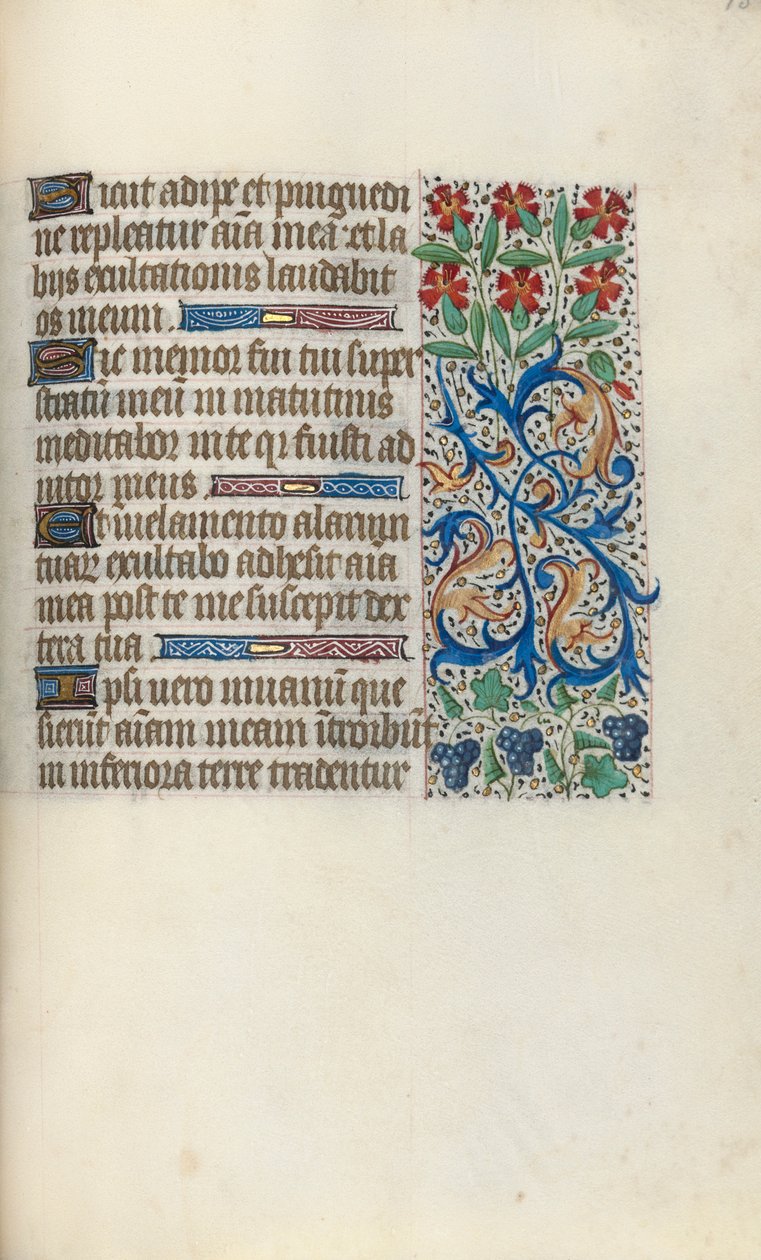 Sicut adipe et pinguedi
ne repleatur aīa mea et la
bijs exultationis laudabit
os meum.
Sic memor fui tui super
stratū meū in matutinis
meditabor in te qꝛ fuisti ad
iutor meus.
Et in uelamento alarum
tuaꝝ exultabo adhesit aīa
mea post te me suscepit dex
tera tua
Ipsi uero in uanū que
sierūt aīam meam ītroibūt
in inferiora terre tradentur